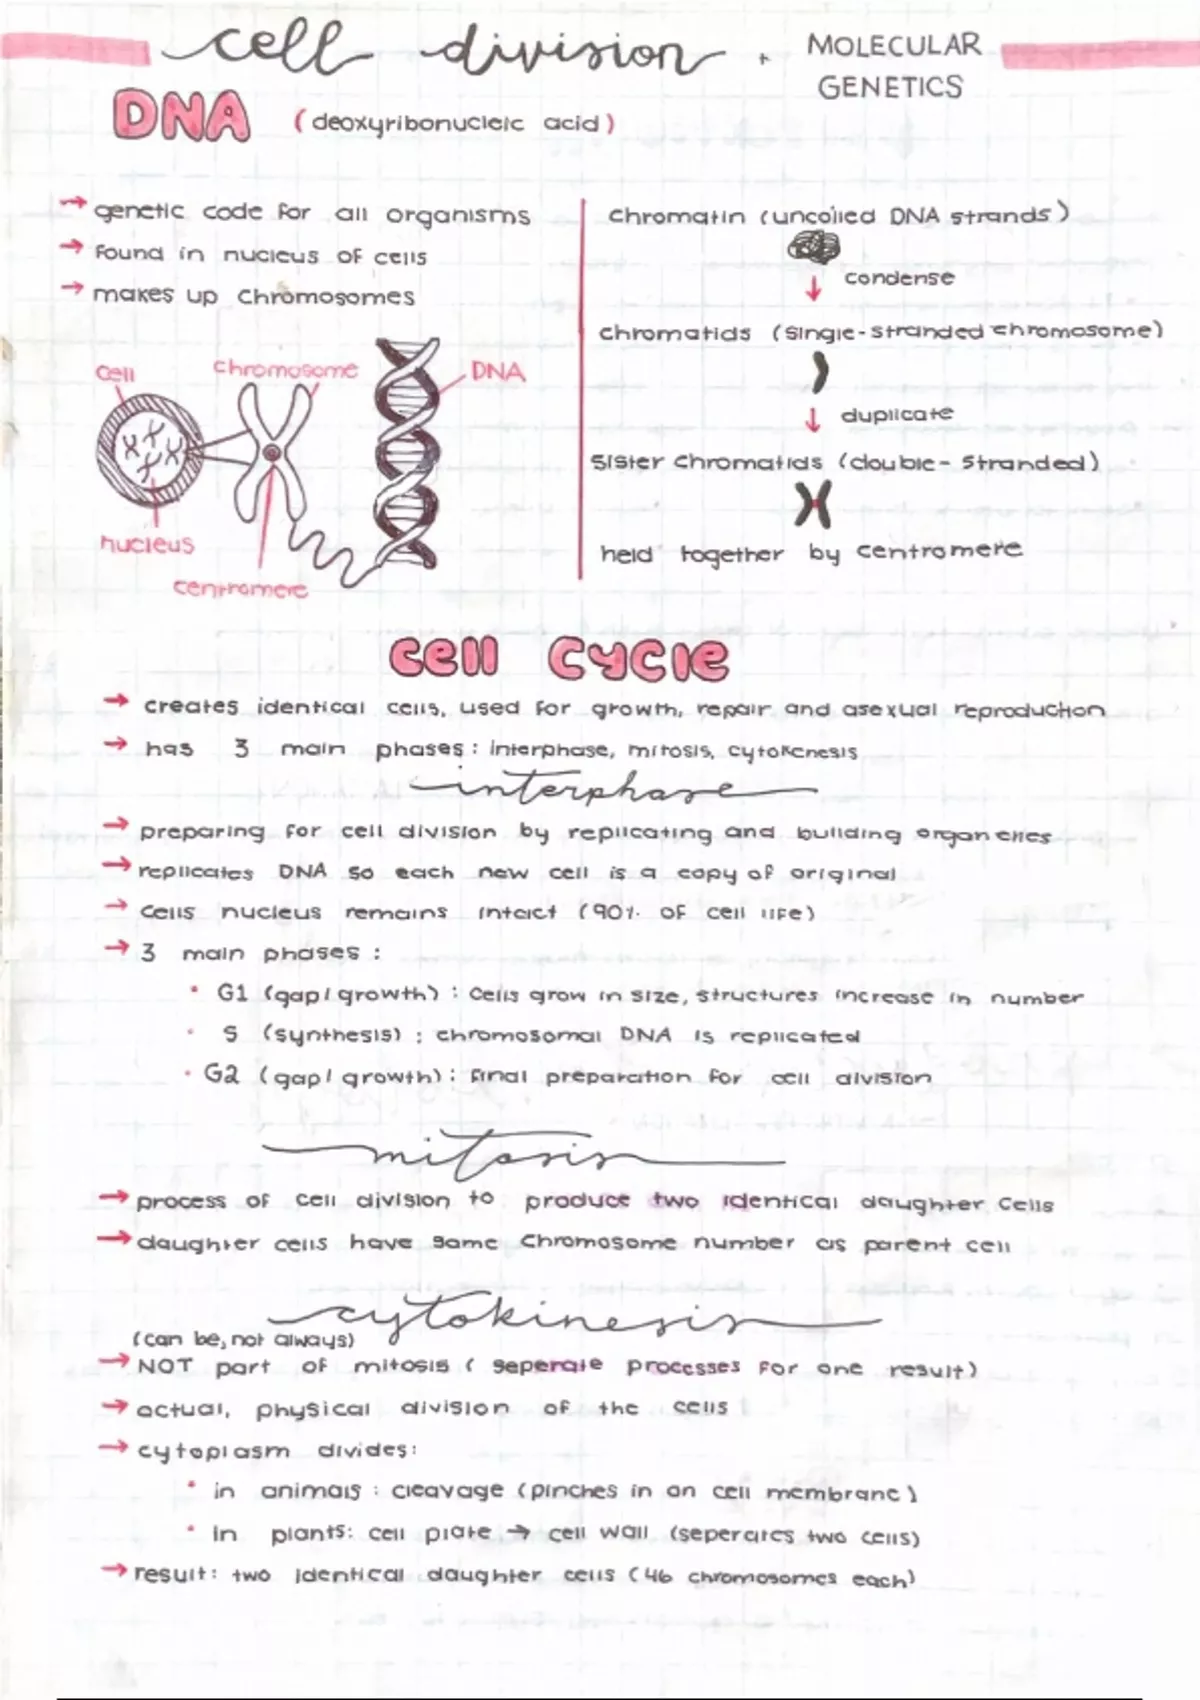 cell division + MOLECULAR
GENETICS
DNA (deoxyribonucleic acid)
→ genetic code for all organisms
→ found in nucleus of cells
→ makes up chromosomes
cell
chromosome
DNA
nucleus
centromere
chromatin (uncoiled DNA strands)
↓ condense
chromatids (single-stranded chromosome)
↓ duplicate
sister chromatids (double-stranded)
held together by centromere
cell cycle
→ creates identical cells, used for growth, repair and asexual reproduction
→ has 3 main phases: interphase, mitosis, cytokenesis
interphase
→ preparing for cell division by replicating and building organelles
→ replicates DNA so each new cell is a copy of original
→ cells nucleus remains intact (90% of cell life)
→ 3 main phases:
• G1 (gap/growth): cells grow in size, structures increase in number
• S (synthesis): chromosomal DNA is replicated
• G2 (gap/growth): final preparation for cell division
mitosis
→ process of cell division to produce two identical daughter cells
→ daughter cells have same chromosome number as parent cell
cytokinesis
(can be, not always)
→ NOT part of mitosis (seperate processes for one result)
→ actual, physical division of the cells
→ cytoplasm divides:
• in animals: cleavage (pinches in on cell membrane)
• in plants: cell plate → cell wall (seperates two cells)
→ result: two identical daughter cells (46 chromosomes each)